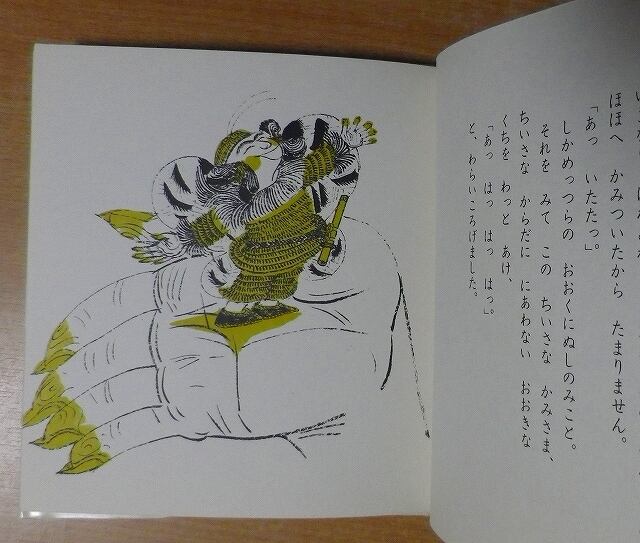 ほほへ かみついたから たまりません。
「あっ いたたっ」。
しかめっつらの おおくにぬしのみこと。
それを みて この ちいさな かみさま、
ちいさな からだに にあわない おおきな
くちを わっと あけ、
「あっ はっ はっ はっ」。
と、わらいころげました。